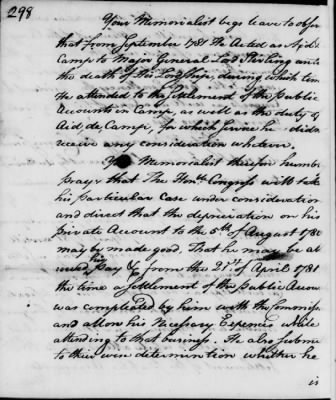 298
Your Memorialist begs leave to obser
that from September 1781 He Acted as Aid de
Camp to Major General Lord Stirling untill
the death of His Lordship, during which time
He attended to the Settlement of the Public
Accounts in Camp, as well as the duty of
Aid de Camp, for which Service he didn
receive any consideration whatever.
Your Memorialist therefore humbly
prays that The Honble. Congress will take
his particular Case under consideration
and direct that the depreciation on his
Private Account to the 5th of August 1780
may be made good. That he may be al
his Pay &c from the 21st of April 1781
the time a Settlement of the Public Accou
was compleated by him with the Commiss
and allow his Necessary Expences while
attending to that business. He also submi
to their own determination whether he
is